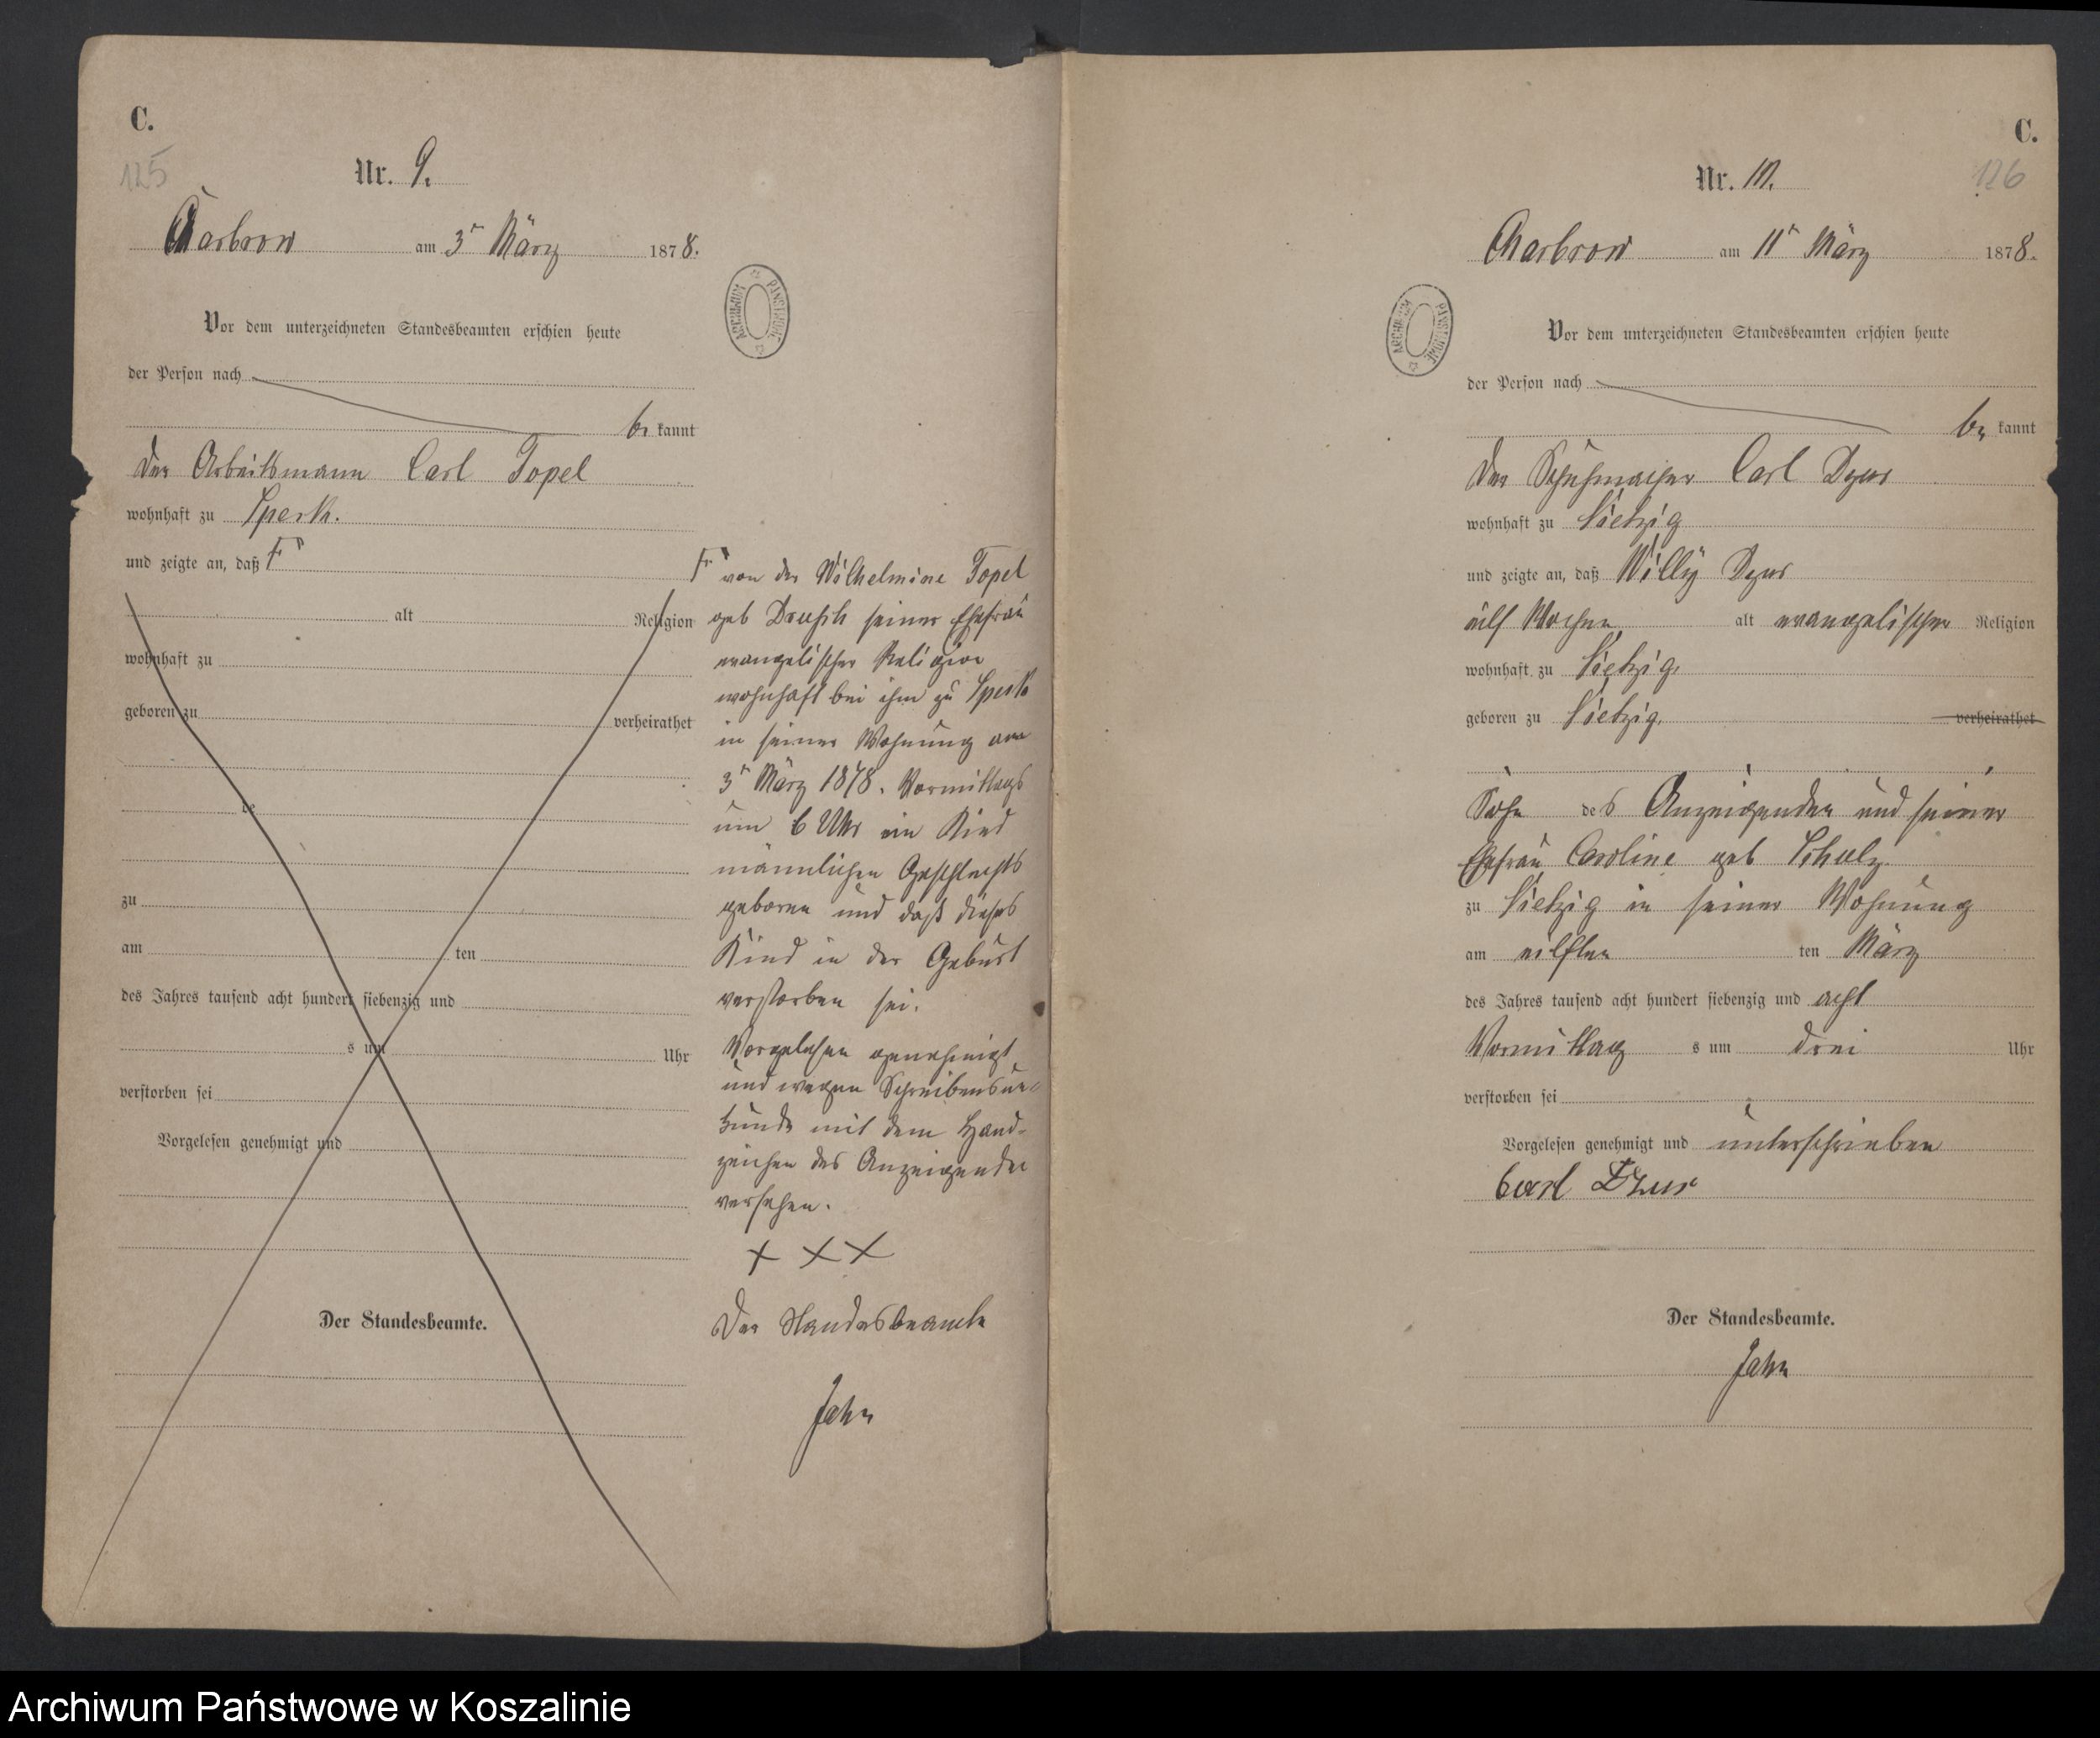 C.
125
Nr. 9.
Charbrow am 3ᵗ März 1878.
ARCHIWUM PAŃSTWOWE
Vor dem unterzeichneten Standesbeamten erschien heute
der Person nach
be kannt
der Arbeitsmann Carl Topel
wohnhaft zu Speck.
und zeigte an, daß
alt Religion
wohnhaft zu
geboren zu verheirathet
te
zu
am ten
des Jahres tausend acht hundert siebenzig und
s um Uhr
verstorben sei
Vorgelesen genehmigt und
Der Standesbeamte.
von der Wilhelmine Topel
geb seiner Ehefrau
evangelischer Religion
wohnhaft bei ihm zu Speck
in seiner Wohnung am
3ᵗ März 1878. Vormittags
um 6 Uhr ein Kind
männlichen Geschlechts
geboren und daß dieses
Kind in der Geburt
verstorben sei.
Vorgelesen genehmigt
und wegen Schreibensun-
kunde mit dem Hand-
zeichen des Anzeigenden
versehen.
+ + +
Der Standesbeamte
Jahn
C.
126
Nr. 10.
Charbrow am 11ᵗ März 1878.
ARCHIWUM PAŃSTWOWE
Vor dem unterzeichneten Standesbeamten erschien heute
der Person nach
be kannt
der Schuhmacher Carl
wohnhaft zu Vietzig
und zeigte an, daß Willy
eilf Wochen alt evangelischer Religion
wohnhaft zu Vietzig
geboren zu Vietzig. verheirathet
Sohn des Anzeigenden und seiner
Ehefrau Caroline geb Scholz
zu Vietzig in seiner Wohnung
am eilften ten März
des Jahres tausend acht hundert siebenzig und acht
Vormittag s um drei Uhr
verstorben sei
Vorgelesen genehmigt und unterschrieben
Carl
Der Standesbeamte.
Jahn
Archiwum Państwowe w Koszalinie